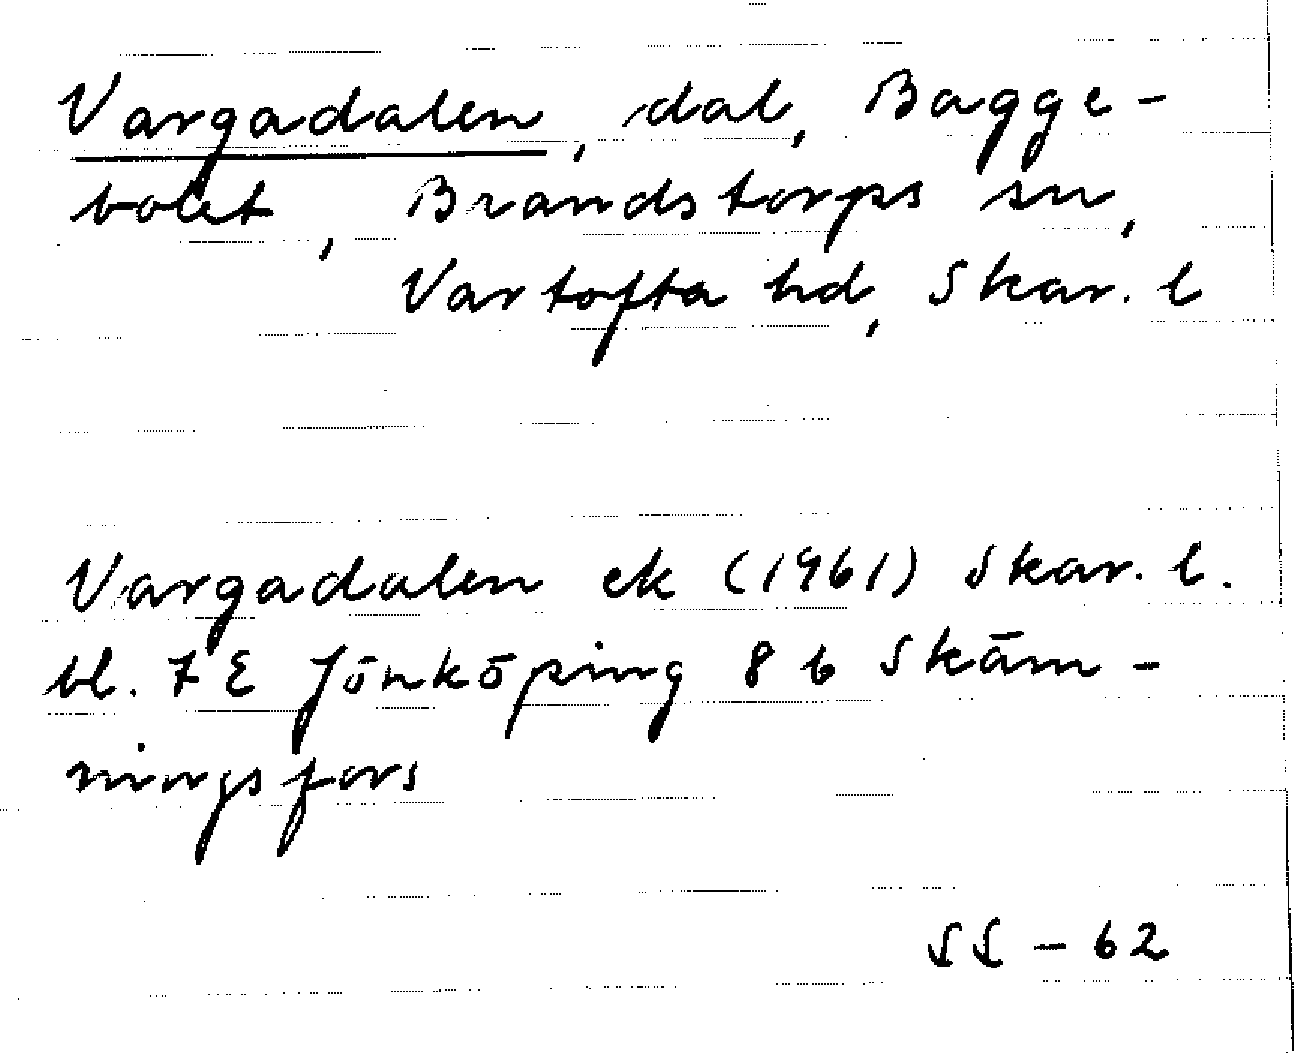 Vargadalen, dal, Bagge-
bolet, Brandstorps sn,
Vartofta hd, Skar. l
Vargadalen ek (1961) Skar. l.
bl. 7E Jönköping 8 b Skäm-
ningsfors
SS - 62